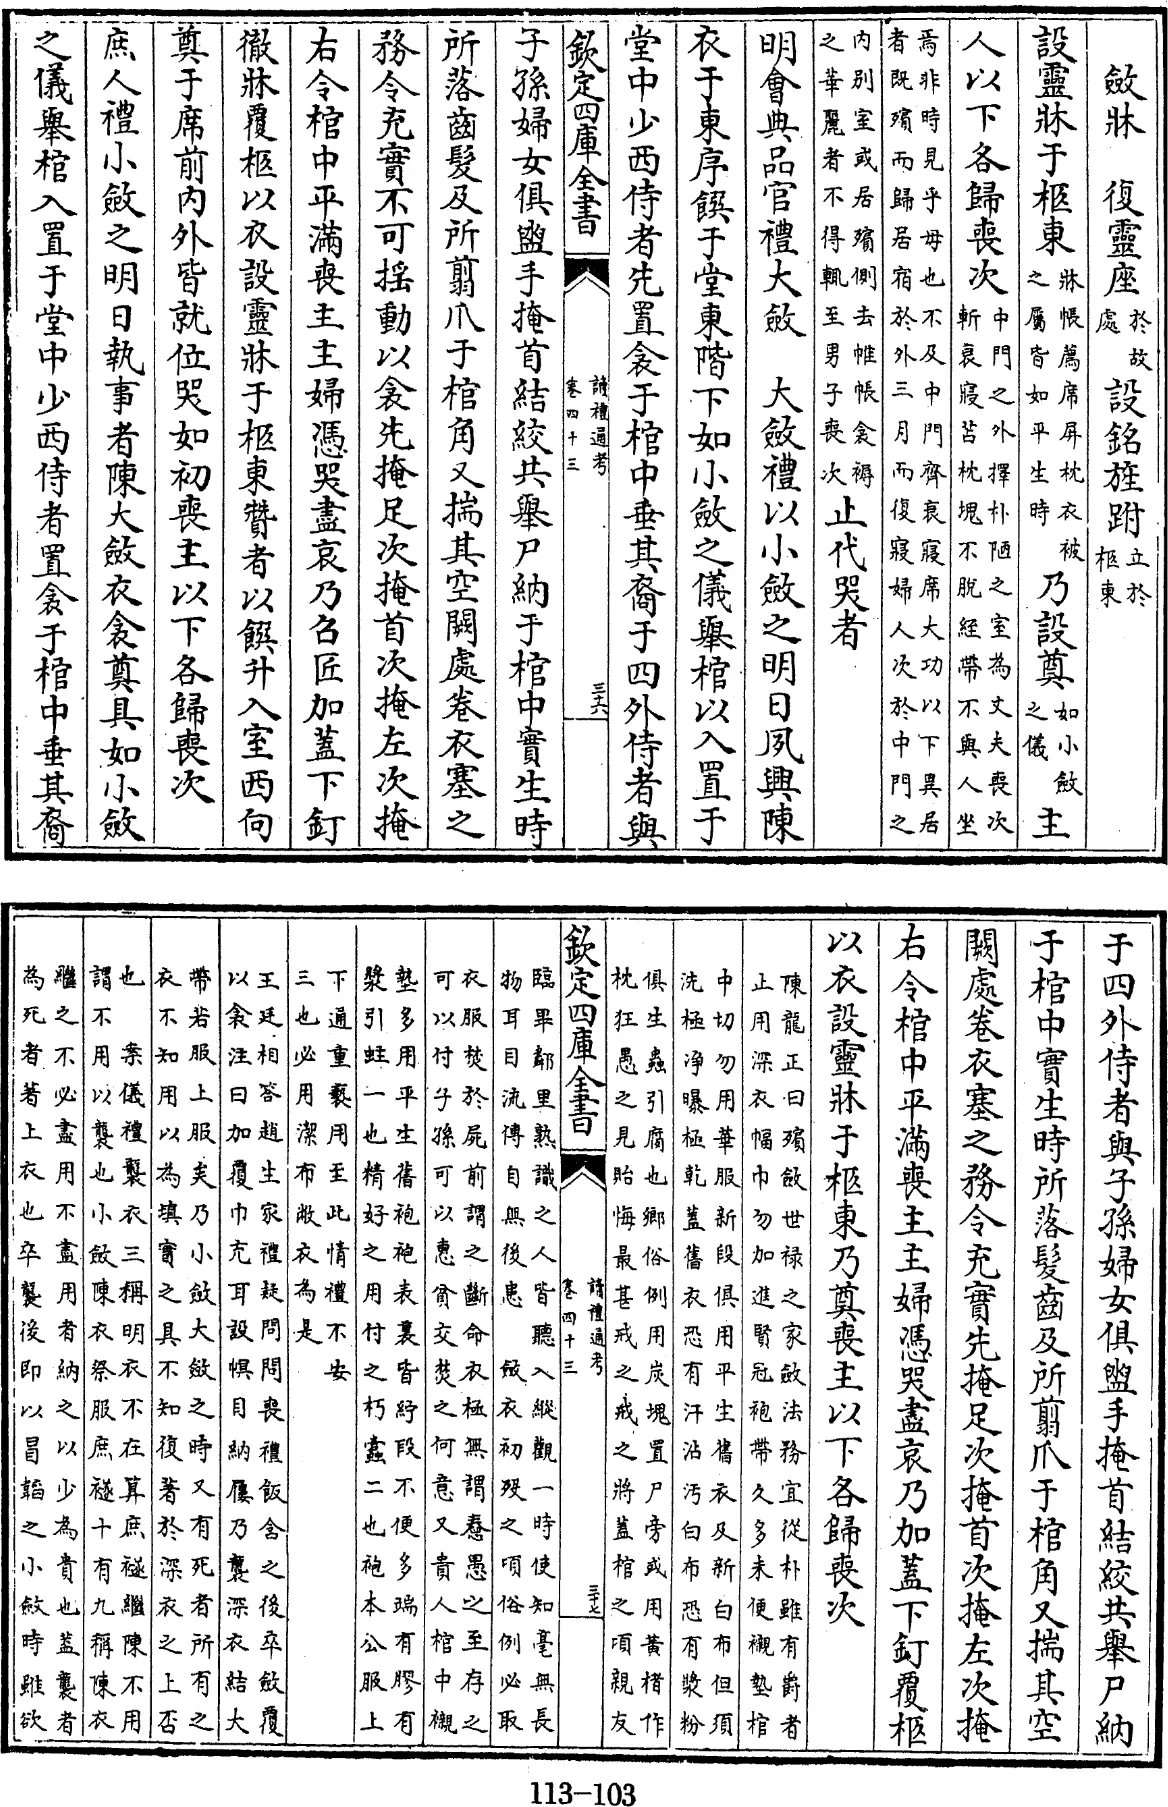 斂牀　復靈座於故處設銘旌跗立於柩東
設靈牀于柩東牀帳薦席屏枕衣被之屬皆如平生時乃設奠如小斂之儀主
人以下各歸喪次中門之外擇朴陋之室為丈夫喪次斬衰寢苫枕塊不脫絰帶不與人坐
焉非時見乎母也不及中門齊衰寢席大功以下異居
者既殯而歸居宿於外三月而復寢婦人次於中門之
内别室或居殯側去帷帳衾褥之華麗者不得輒至男子喪次止代哭者
明會典品官禮大斂　大斂禮以小斂之明日夙興陳
衣于東序饌于堂東階下如小斂之儀舉棺以入置于
堂中少西侍者先置衾于棺中垂其裔于四外侍者與
欽定四庫全書
讀禮通考
卷四十三
三六
子孫婦女俱盥手掩首結絞共舉尸納于棺中實生時
所落齒髮及所翦爪于棺角又揣其空闕處卷衣塞之
務令充實不可揺動以衾先掩足次掩首次掩左次掩
右令棺中平滿喪主主婦憑哭盡哀乃召匠加蓋下釘
徹牀覆柩以衣設靈牀于柩東贊者以饌升入室西向
奠于席前内外皆就位哭如初喪主以下各歸喪次
庶人禮小斂之明日執事者陳大斂衣衾奠具如小斂
之儀舉棺入置于堂中少西侍者置衾于棺中垂其裔
于四外侍者與子孫婦女俱盥手掩首結絞共舉尸納
于棺中實生時所落髮齒及所翦爪于棺角又揣其空
闕處卷衣塞之務令充實先掩足次掩首次掩左次掩
右令棺中平滿喪主主婦憑哭盡哀乃加蓋下釘覆柩
以衣設靈牀于柩東乃奠喪主以下各歸喪次
陳龍正曰殯斂世禄之家斂法務宜從朴雖有爵者
止用深衣幅巾勿加進賢冠袍帶久多未便襯墊棺
中切勿用華服新段俱用平生舊衣及新白布但須
洗極净曝極乾蓋舊衣恐有汗沾汚白布恐有漿粉
俱生蟲引腐也鄉俗例用炭塊置尸旁或用黃楮作
枕狂愚之見貽悔最甚戒之戒之將蓋棺之頃親友
欽定四庫全書
讀禮通考
卷四十三
三七
臨畢鄰里熟識之人皆聽入縱觀一時使知毫無長
物耳目流傳自無後患　斂衣初歿之頃俗例必取
衣服焚於屍前謂之斷命衣極無謂惷愚之至存之
可以付子孫可以惠貧交焚之何意又貴人棺中襯
墊多用平生舊袍袍表裏皆紵段不便多端有膠有
漿引蛀一也精好之用付之朽蠹二也袍本公服上
下通重褻用至此情禮不安
三也必用潔布敝衣為是
王廷相答趙生家禮疑問問喪禮飯含之後卒斂覆
以衾注曰加覆巾充耳設愳目納屨乃襲深衣結大
帶若服上服矣乃小斂大斂之時又有死者所有之
衣不知用以為填實之具不知復著於深衣之上否
也　案儀禮襲衣三稱明衣不在算庶襚繼陳不用
謂不用以襲也小斂陳衣祭服庶襚十有九稱陳衣
繼之不必盡用不盡用者納之以少為貴也蓋襲者
為死者著上衣也卒襲後即以冒韜之小斂時雖欲
113-103